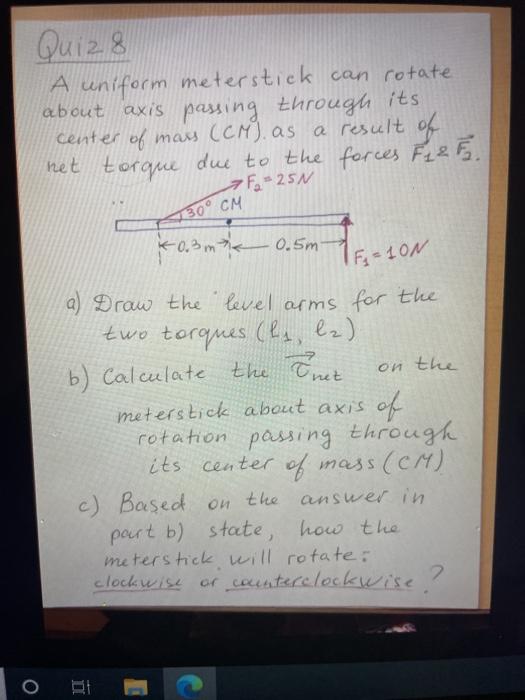 Quiz 8
A uniform meterstick can rotate
about axis passing through its
center of mass (CM). as a result of
net torque due to the forces F⃗₁ & F⃗₂.
F₂ = 25N
30° CM
0.3m 0.5m
F₁ = 10N
a) Draw the level arms for the
two torques (ℓ₁, ℓ₂)
b) Calculate the τ⃗net on the
meterstick about axis of
rotation passing through
its center of mass (CM)
c) Based on the answer in
part b) state, how the
meterstick will rotate:
clockwise or counterclockwise?